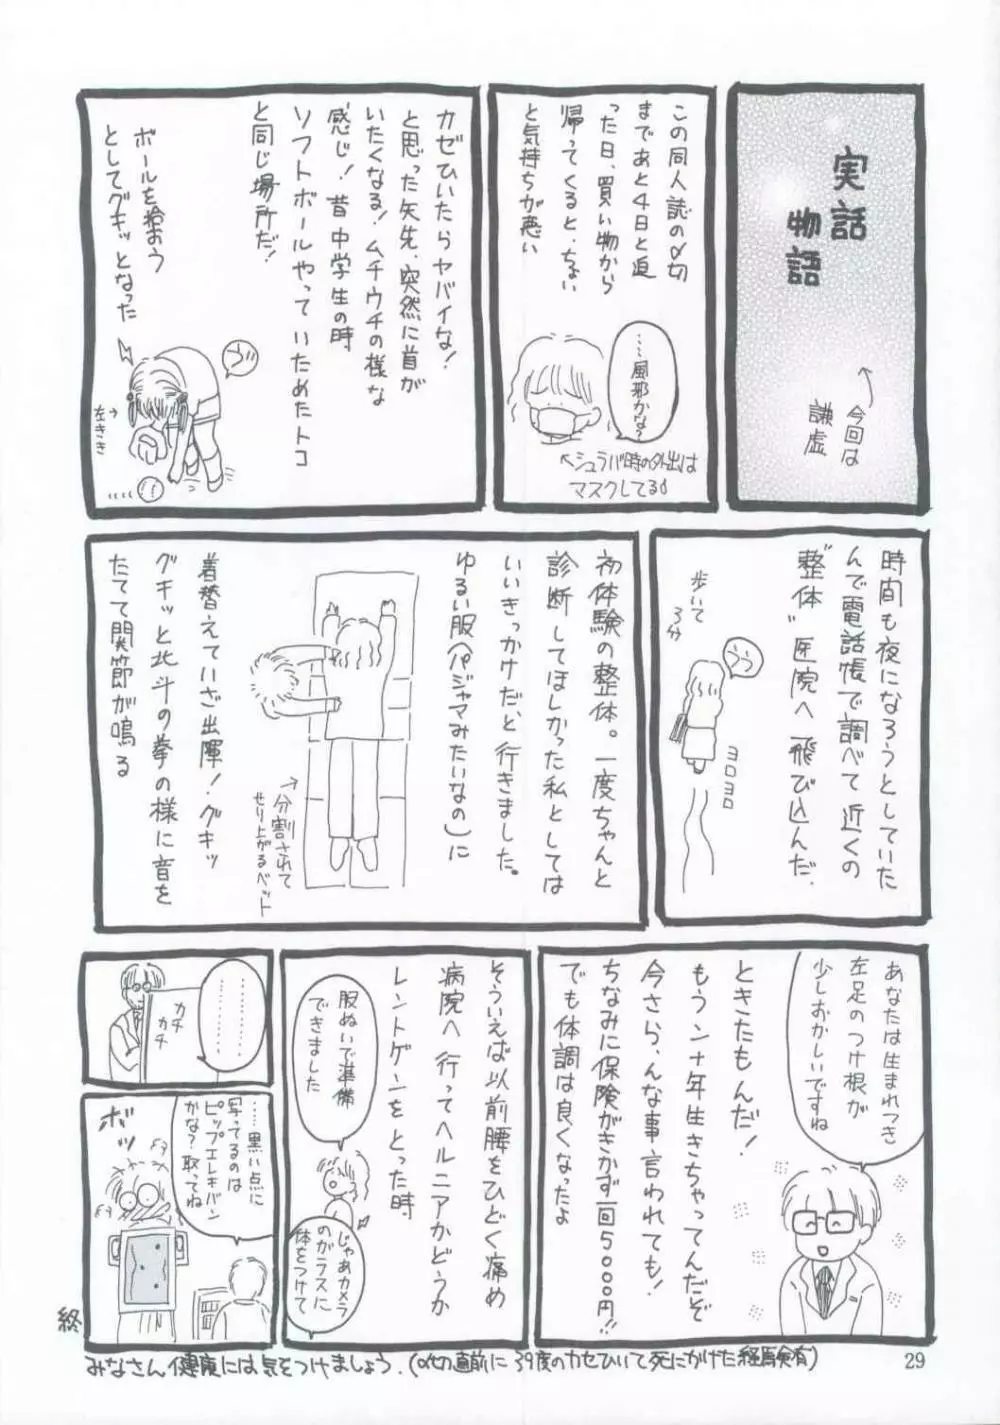 実話
物語
↑今回は
謙虚
この同人誌の〆切
まであと4日と迫
った日、買い物から
帰ってくると、ちょい
と気持ちが悪い
……風邪かな?
↑シュラバ時の外出は
マスクしてるよ
カゼひいたらヤバイな!
と思った矢先、突然に首が
いたくなる!ムチウチの様な
感じ!昔中学生の時
ソフトボールやっていためたトコ
と同じ場所だ!
ボールを拾おう
としてグキッとなった
うっ
左きき→
時間も夜になろうとしていた
んで電話帳で調べて近くの
"整体"医院へ飛び込んだ.
歩いて
3分
うう
ヨロヨロ
初体験の整体。一度ちゃんと
診断してほしかった私としては
いいきっかけだ、と行きました。
ゆるい服(パジャマみたいなの)に
↑分割されて
せり上がるベット
着替えていざ出陣!グキッ
グキッと北斗の拳の様に音を
たてて関節が鳴る
あなたは生まれつき
左足のつけ根が
少しおかしいですね
ときたもんだ!
もうン十年生きちゃってんだぞ
今さら、んな事言われても!
ちなみに保険がきかず一回5000円!!
でも体調は良くなったよ
そういえば以前腰をひどく痛め
病院へ行ってヘルニアかどうか
レントゲンをとった時
服ぬいで準備
できました
じゃあカメラ
のガラスに
体をつけて
…………
…………
カチ
カチ
……黒い点に
写ってるのは
ピップエレキバン
かな?取ってね
ボッ
終
みなさん健康には気をつけましょう.(〆切直前に39度のカゼひいて死にかけた経験有)
29